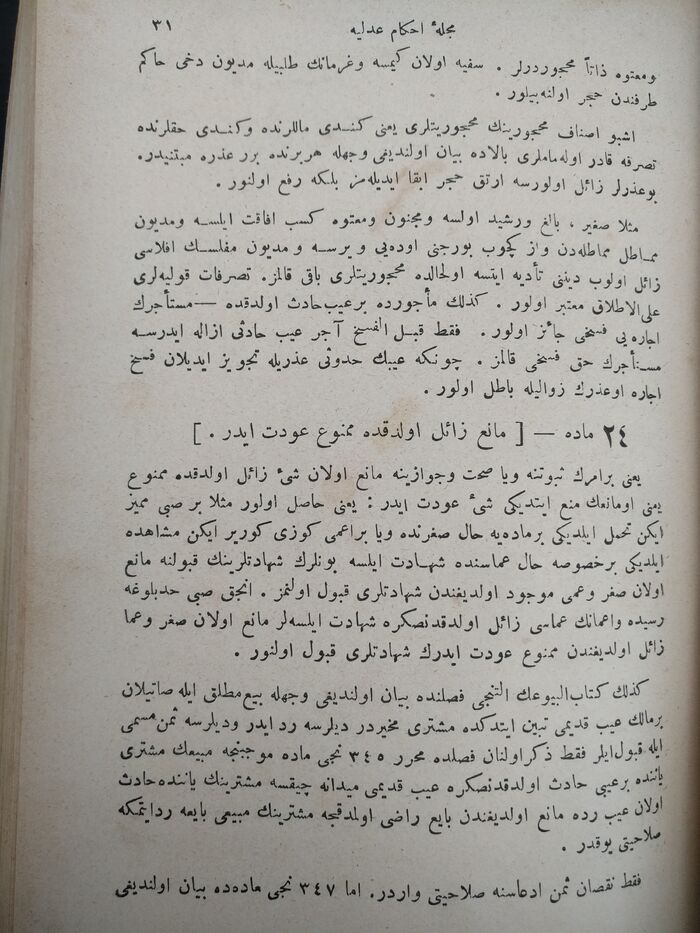 مجلهٔ احكام عدليه ٣١
ومعتوه ذاتاً محجوردرلر . سفيه اولان كيمسه وغرمانك طلبيله مديون دخى حاكم
طرفندن حجر اولنه‌بيلور .
اشبو اصناف محجورينك محجوريتلرى يعنى كندى ماللرنده وكندى حقلرنده
تصرفه قادر اوله‌ماملرى بالاده بيان اولنديغى وجهله هربرنده برر عذره مبتنيدر.
بوعذرلر زائل اولورسه ارتق حجر ابقا ايديله‌مز بلكه رفع اولنور .
مثلا صغير ، بالغ ورشيد اولسه ومجنون ومعتوه كسب افاقت ايلسه ومديون
مماطل مماطله‌دن واز كچوب بورجنى اوده‌يى ويرسه و مديون مفلسك افلاسى
زائل اولوب دينى تأديه ايتسه اولحالده محجوريتلرى باقى قالمز. تصرفات قوليه‌لرى
على‌الاطلاق معتبر اولور . كذلك مأجورده برعيب‌حادث اولدقده —مستأجرك
اجاره‌يى فسخى جائز اولور . فقط قبل‌الفسخ آجر عيب حادثى ازاله ايدرسه
مستأجرك حق فسخى قالمز . چونكه عيبك حدوثى عذريله تجويز ايديلان فسخ
اجاره اوعذرك زواليله باطل اولور .
٢٤ ماده — [ مانع زائل اولدقده ممنوع عودت ايدر . ]
يعنى برامرك ثبوتنه ويا صحت وجوازينه مانع اولان شئ زائل اولدقده ممنوع
يعنى اومانعك منع ايتديكى شئ عودت ايدر : يعنى حاصل اولور مثلا بر صبى مميز
ايكن تحمل ايلديكى برماده‌يه حال صغرنده ويا براعمى كوزى كورير ايكن مشاهده
ايلديكى برخصوصه حال عماسنده شهادت ايلسه بونلرك شهادتلرينك قبولنه مانع
اولان صغر وعمى موجود اولديغندن شهادتلرى قبول اولنمز . انجق صبى حدبلوغه
رسيده واعمانك عماسى زائل اولدقدنصكره شهادت ايلسه‌لر مانع اولان صغر وعما
زائل اولديغندن ممنوع عودت ايدرك شهادتلرى قبول اولنور .
كذلك كتاب‌البيوعك التنجى فصلنده بيان اولنديغى وجهله بيع‌مطلق ايله صاتيلان
برمالك عيب قديمى تبين ايتدكده مشترى مخيردر ديلرسه رد ايدر وديلرسه ثمن‌مسمى
ايله قبول‌ايلر فقط ذكراولنان فصلده محرر ٣٤٥ نجى ماده موجبنجه مبيعك مشترى
ياننده برعيبى حادث اولدقدنصكره عيب قديمى ميدانه چيقسه مشترينك ياننده‌حادث
اولان عيب رده مانع اولديغندن بايع راضى اولمدقجه مشترينك مبيعى بايعه ردايتمكه
صلاحيتى يوقدر .
فقط نقصان ثمن ادعاسنه صلاحيتى واردر. اما ٣٤٧ نجى ماده‌ده بيان اولنديغى